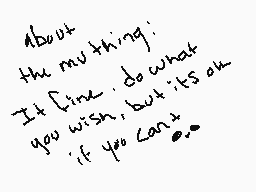 about
the mv thing:
It fine. do what
you wish, but its ok
if you cant